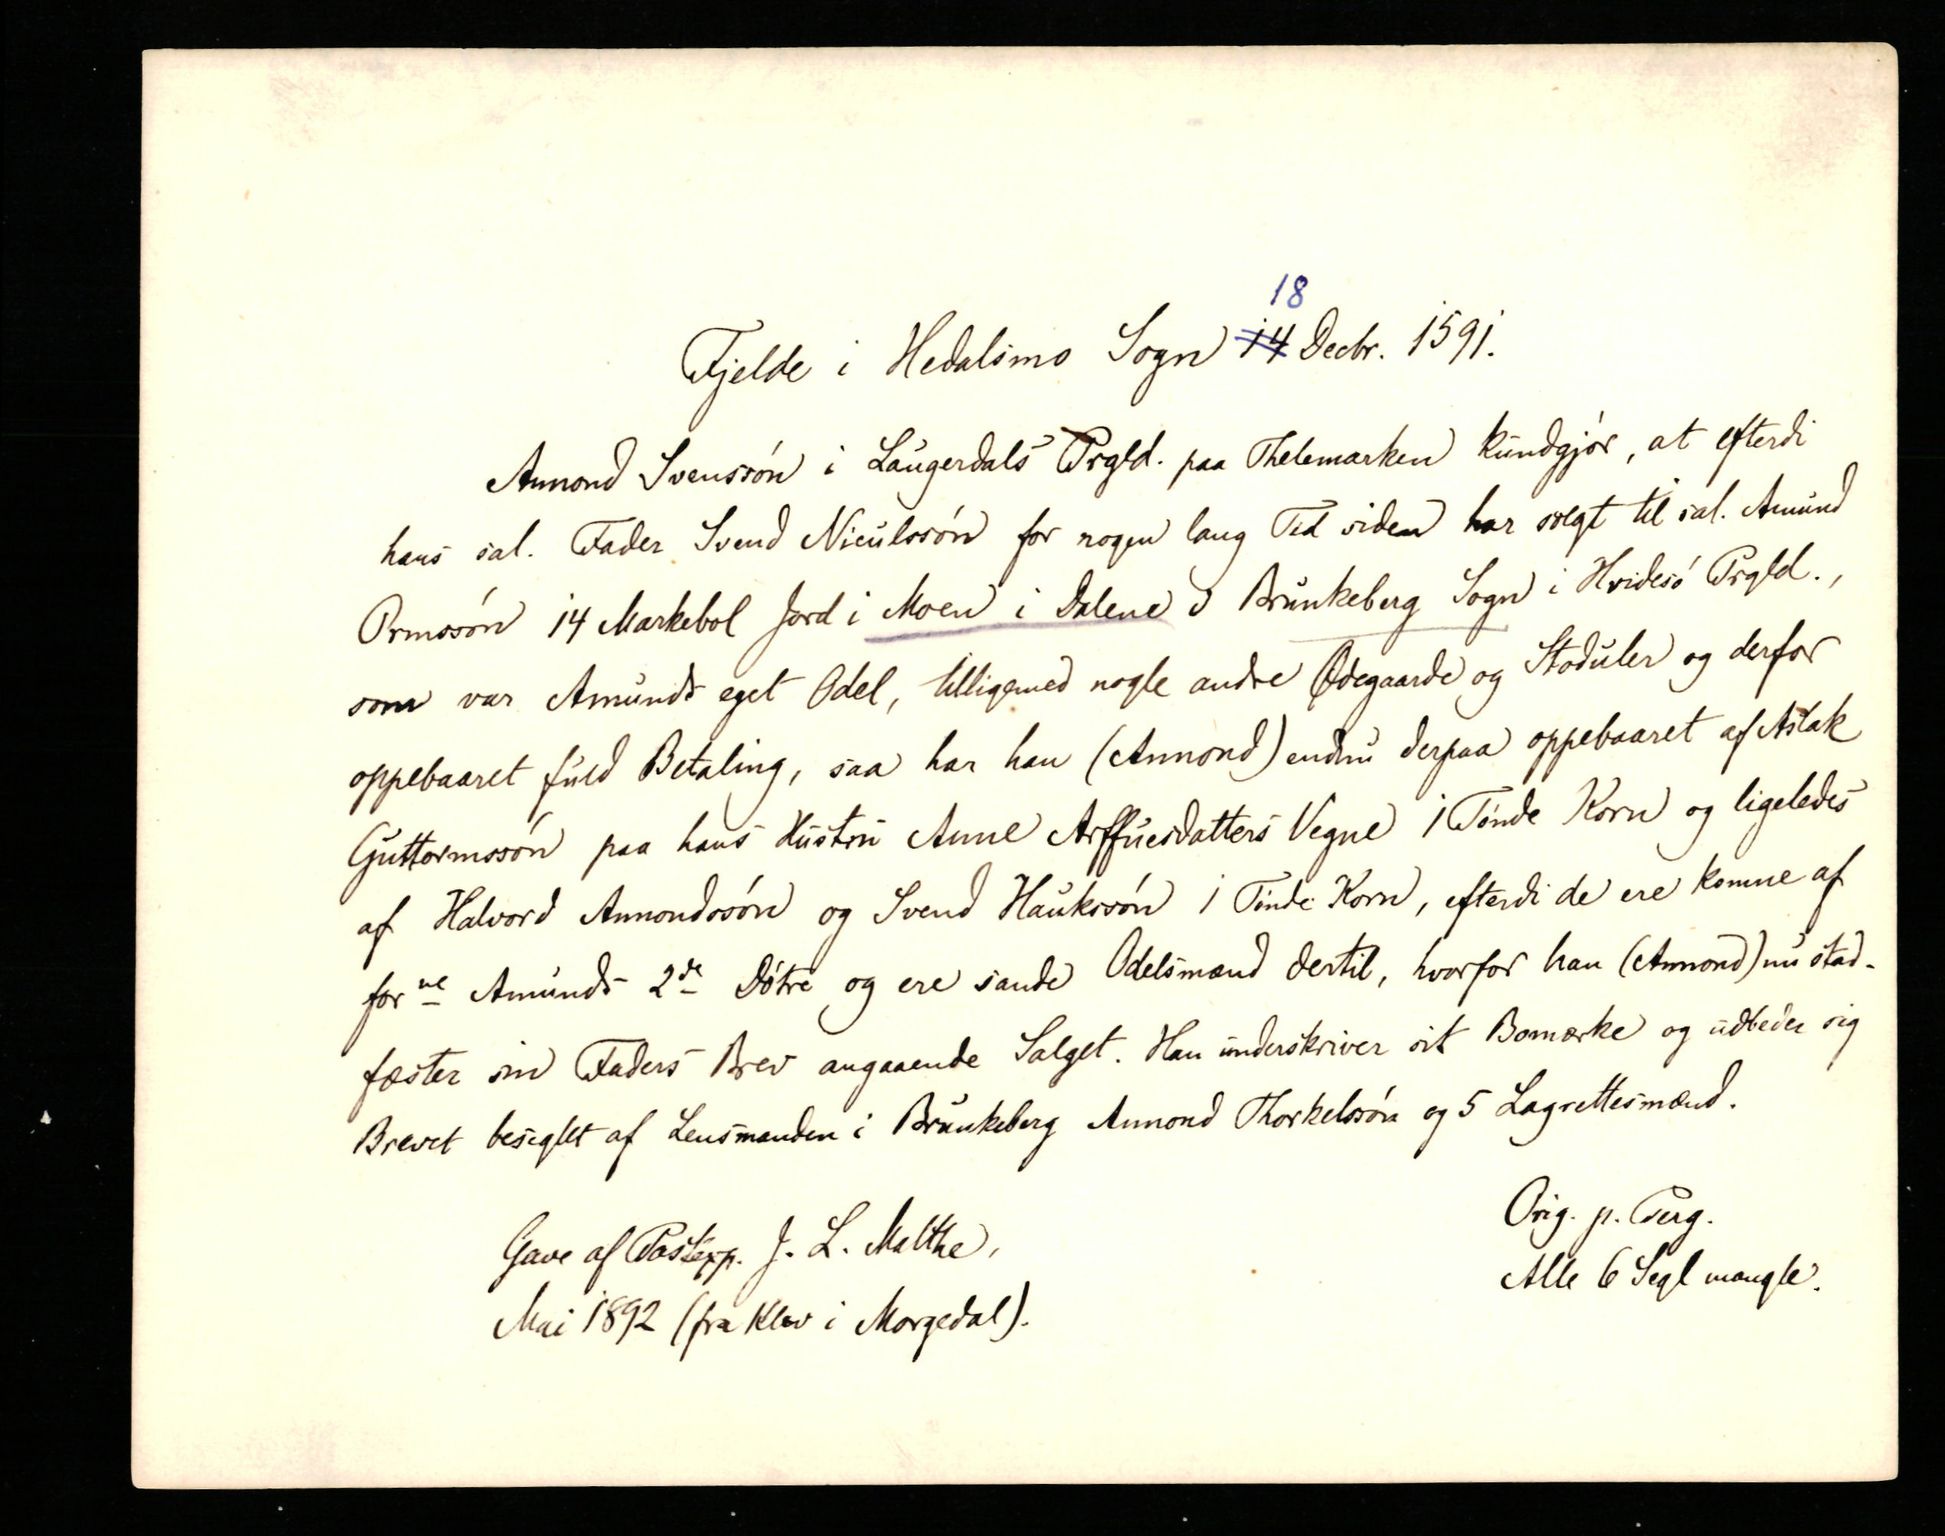 18
Fjelde i Hedalsmo Sogn 14 Decbr. 1591.
Anmond Svenssón i Laugerdals Prgld. paa Thelemarken kundgjór, at efterdi
hans sal. Fader Svend Niculssón for nogen lang Tid siden har solgt til sal. Amund
Ormssón 14 Markebol Jord i Moen i Dalene i Brunkeberg Sogn i Hvidesó Prgld.,
som var Amunds eget Odel, tilligemed nogle andre Ødegaarde og Stoduler og derfor
oppebaaret fuld Betaling, saa har han (Anmond) endnu derpaa oppebaaret af Aslak
Guttormssón paa hans Hustru Anne Arffuesdatters Vegne 1 Tónde Korn og ligeledes
af Halvord Anmondssón og Svend Haukssón 1 Tónde Korn, efterdi de ere komne af
forne Amunds 2de Dótre og ere sande Odelsmænd dertil, hvorfor han (Anmond) nu stad-
fæster sin Faders Brev angaaende Salget. Han underskriver sit Bomærke og udbeder sig
Brevet beseglet af Lensmanden i Brunkeberg Anmond Thorkelssón og 5 Lagrettesmænd.
Orig. p. Perg.
Alle 6 Segl mangle.
Gave af Postexp. J. L. Malthe,
Mai 1892 (fra Klev i Morgedal).